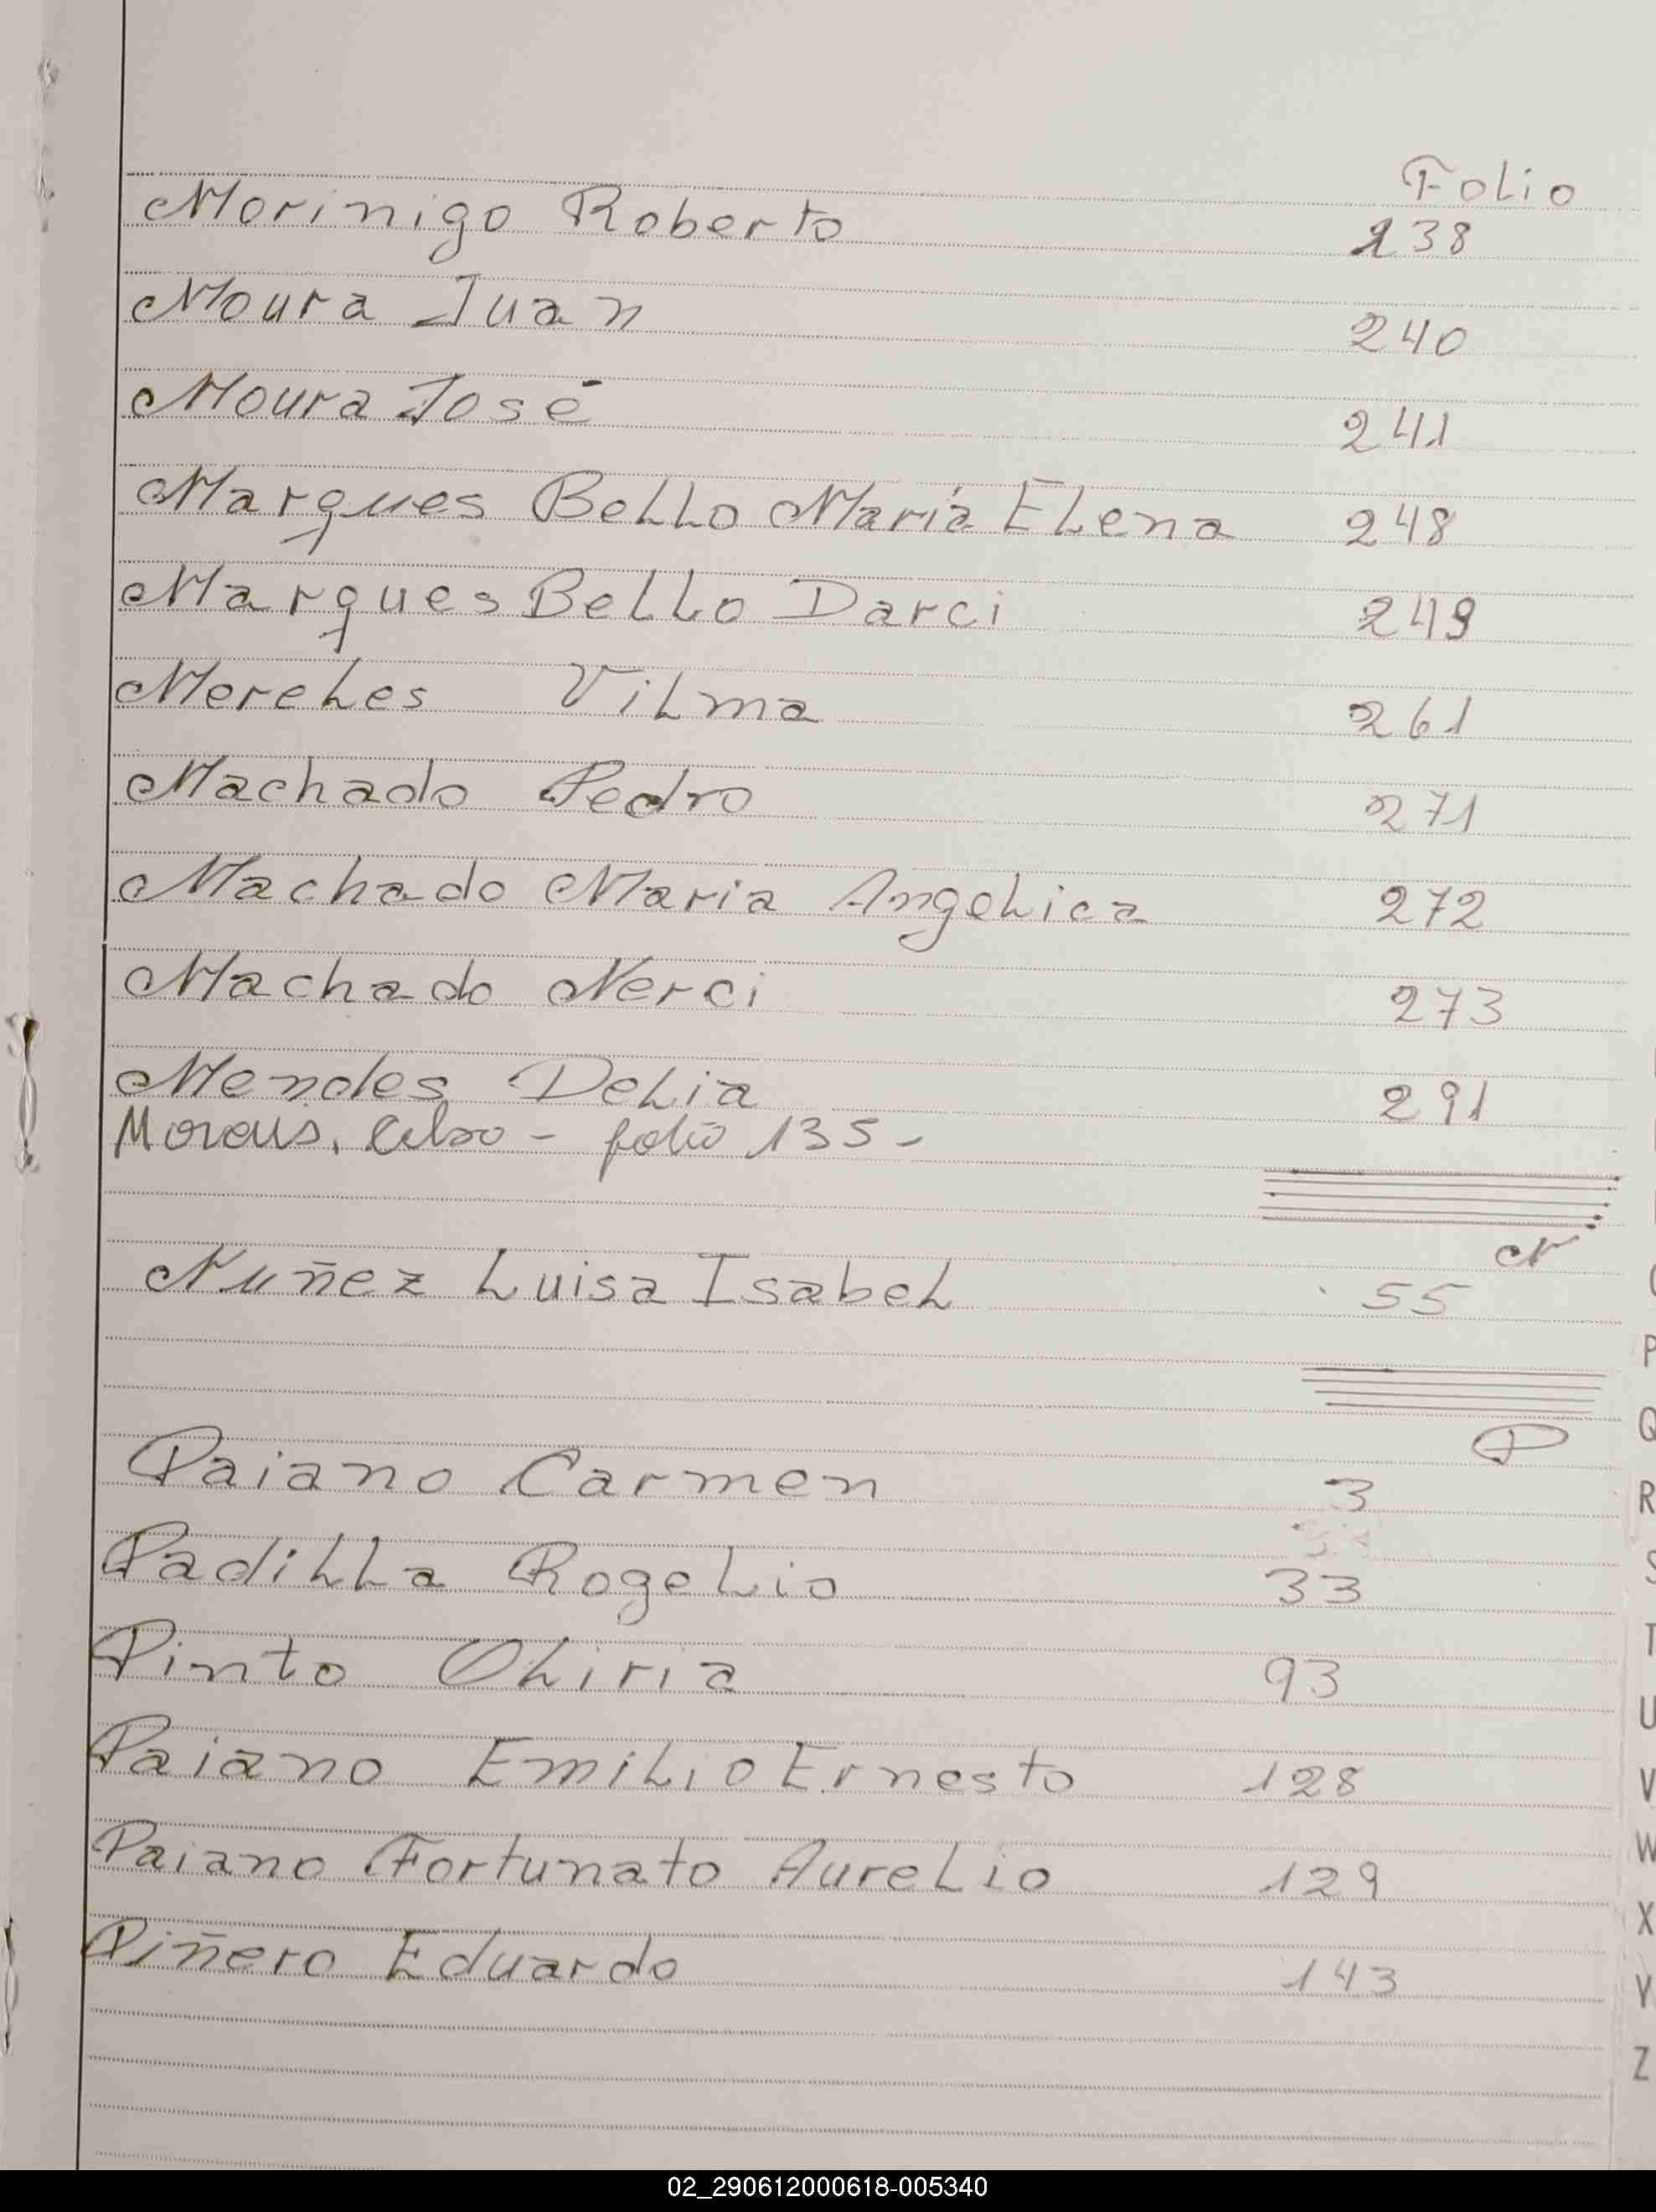 Folio
Morinigo Roberto 238
Moura Juan 240
Moura José 241
Marques Bello María Elena 248
Marques Bello Darci 249
Mereles Vilma 261
Machado Pedro 271
Machado Maria Angelica 272
Machado Nerci 273
Mendes Delia 291
Morais, Celso - folio 135-
N
Nuñez Luisa Isabel 55
P
Paiano Carmen 3
Padilla Rogelio 33
Pinto Oliria 93
Paiano Emilio Ernesto 128
Paiano Fortunato Aurelio 129
Piñero Eduardo 143
P
Q
R
S
T
U
V
W
X
Y
Z
02_290612000618-005340